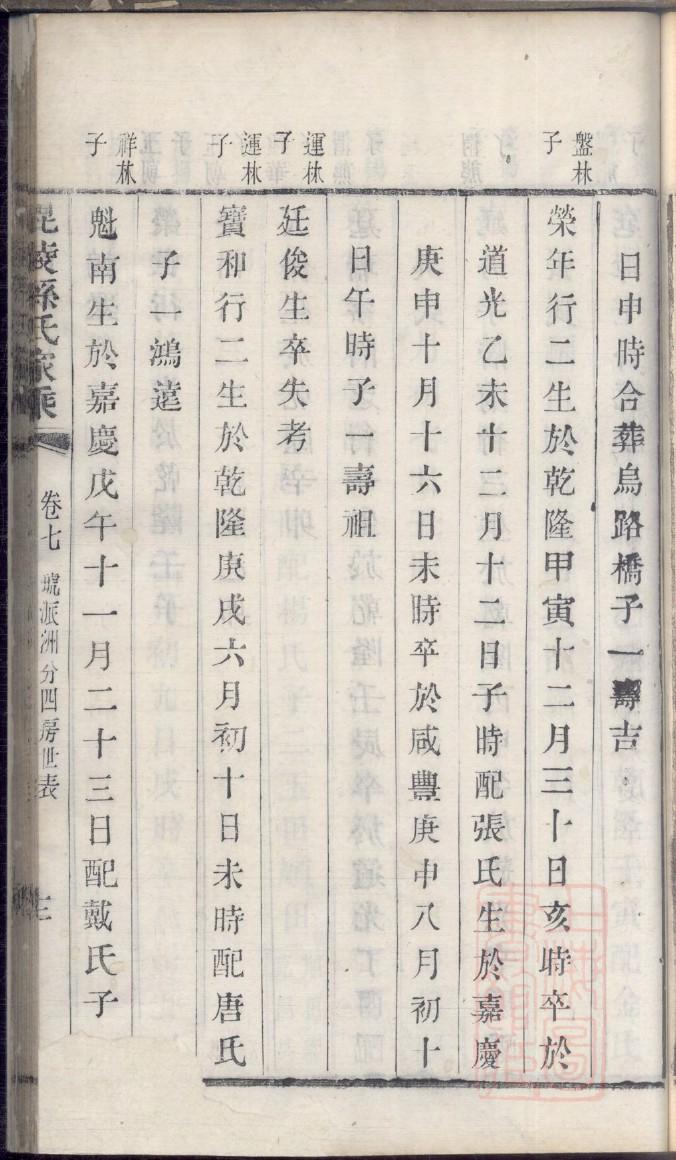 日申時合葬烏路橋子一壽吉
盤林子
榮年行二生於乾隆甲寅十二月三十日亥時卒於
道光乙未十二月十二日子時配張氏生於嘉慶
庚申十月十六日未時卒於咸豐庚申八月初十
日午時子一壽祖
運林子
廷俊生卒失考
運林子
寶和行二生於乾隆庚戌六月初十日未時配唐氏
子一鴻遠
祥林子
魁南生於嘉慶戊午十一月二十三日配戴氏子
毘陵孫氏家乘
卷七
派洲分四房世表